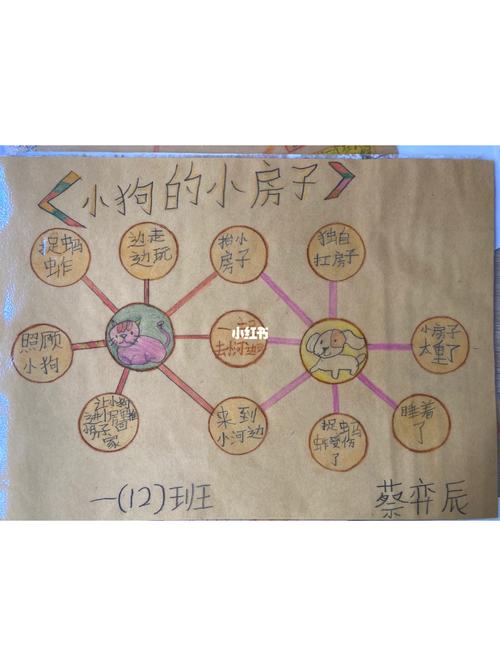 《小狗的小房子》
捉蚂
蚱
边走
边玩
抬小
房子
独自
扛房子
照顾
小狗
一起
去小河边
小红书
小房子
太重了
来到
小河边
捉蚂
蚱受伤
了
睡着
了
家
一(12)班
蔡弈辰